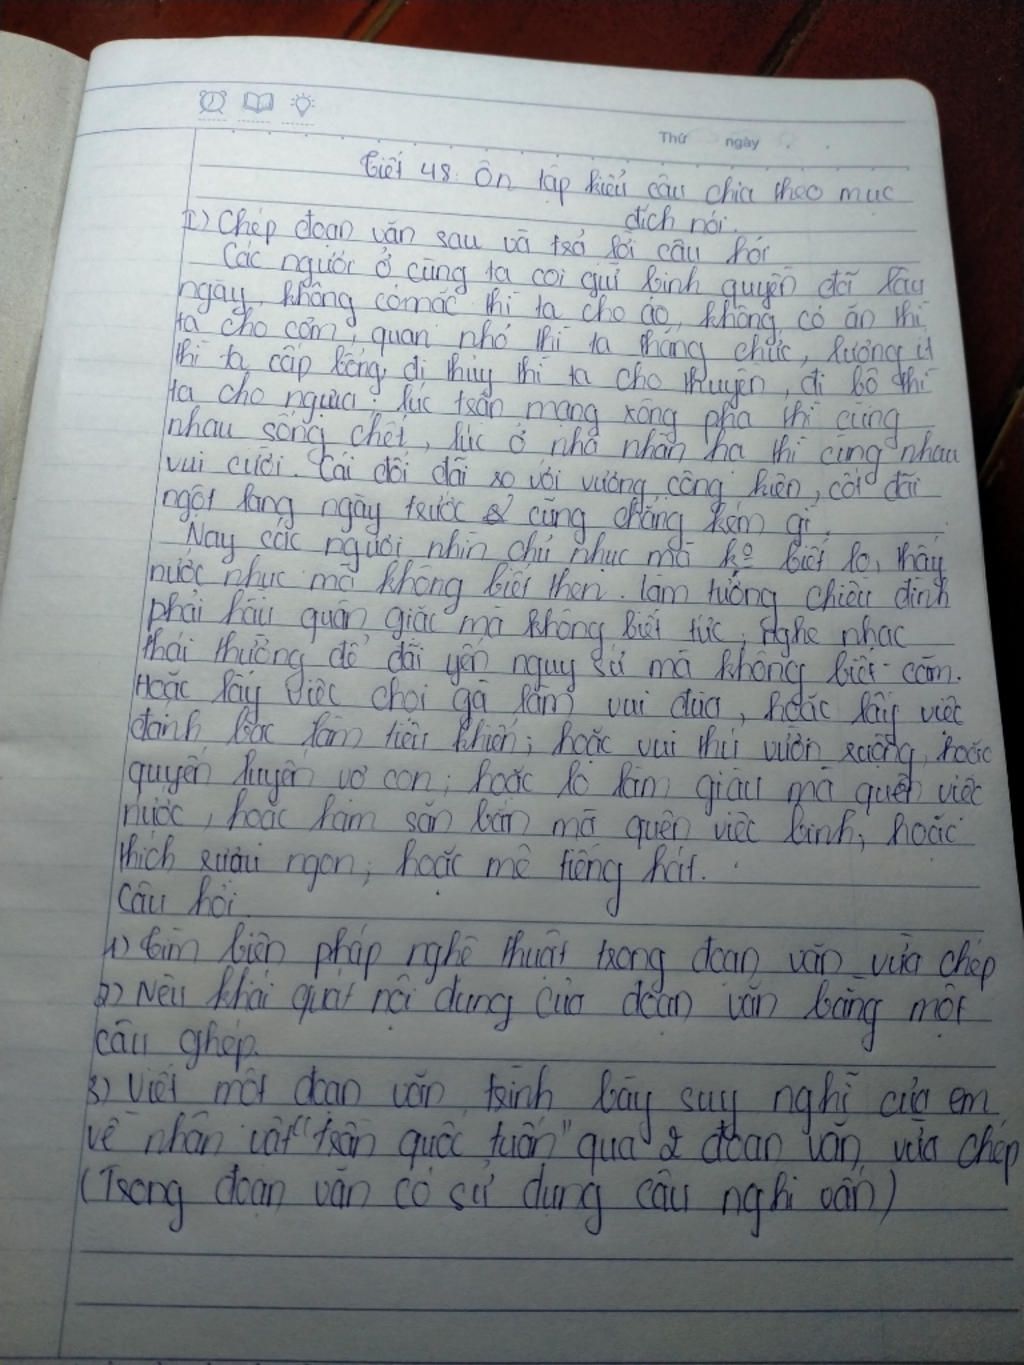 Thứ ngày
Tiết 48: Ôn tập kiểu câu chia theo mục
đích nói.
I) Chép đoạn văn sau và trả lời câu hỏi
Các người ở cùng ta coi giữ binh quyền đã lâu
ngày, không có mặc thì ta cho áo, không có ăn thì
ta cho cơm, quan nhỏ thì ta thăng chức, lương ít
thì ta cấp bổng, đi thủy thì ta cho thuyền, đi bộ thì
ta cho ngựa; lúc trận mạng xông pha thì cùng
nhau sống chết, lúc ở nhà nhàn hạ thì cùng nhau
vui cười. Cái đối đãi so với vương công kiên, cốt đãi
ngột lang ngày trước cũng chẳng kém gì.
Nay các người nhìn chủ nhục mà ko biết lo, thấy
nước nhục mà không biết thẹn. Làm tướng chiều đình
phải hầu quân giặc mà không biết tức; nghe nhạc
thái thường để đãi yến nguỵ sứ mà không biết căm.
Hoặc lấy việc chọi gà làm vui đùa, hoặc lấy việc
đánh bạc làm tiêu khiển; hoặc vui thú vườn ruộng, hoặc
quyến luyến vợ con; hoặc lo làm giàu mà quên việc
nước, hoặc ham săn bắn mà quên việc binh; hoặc
thích rượu ngon; hoặc mê tiếng hát.
Câu hỏi
1) Tìm biện pháp nghệ thuật trong đoạn văn vừa chép
2) Nêu khái quát nội dung của đoạn văn bằng một
câu ghép.
3) Viết một đoạn văn trình bày suy nghĩ của em
về nhân vật "Trần quốc tuấn" qua 2 đoạn văn vừa chép
(Trong đoạn văn có sử dụng câu nghi vấn)